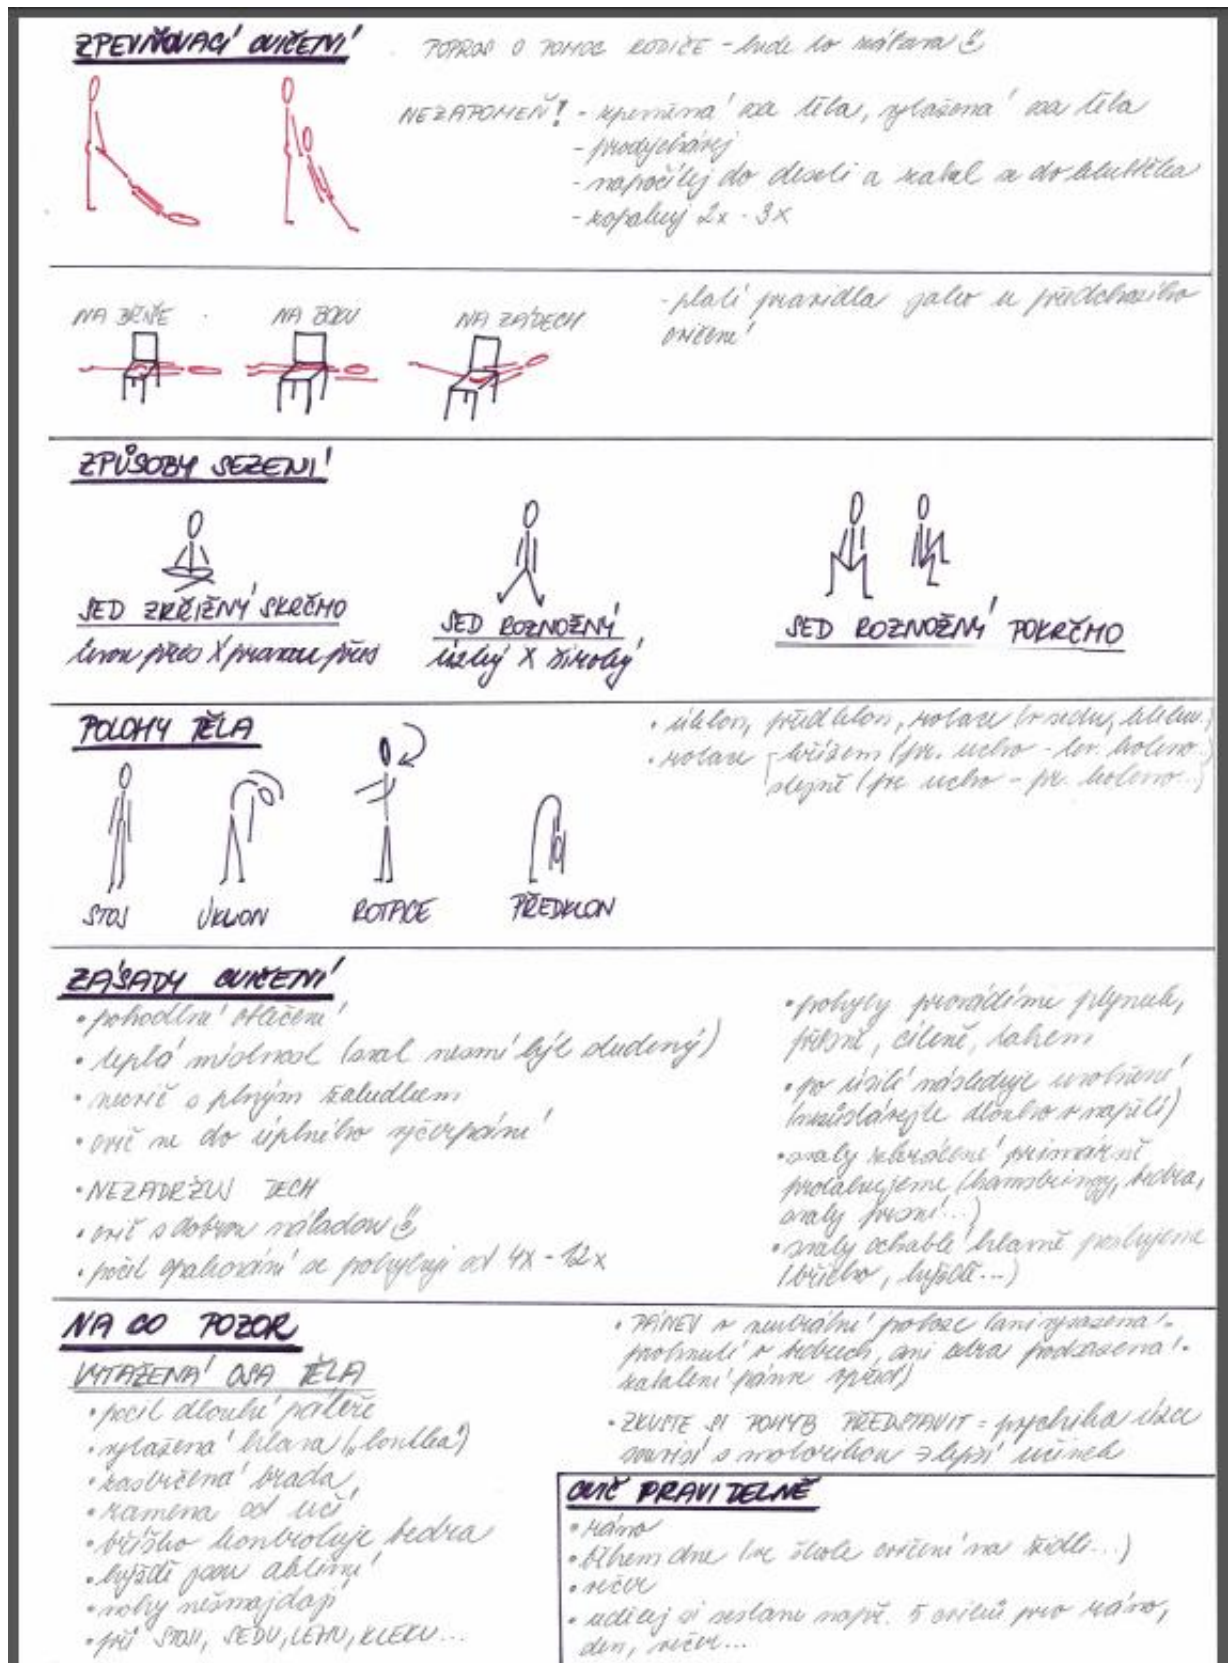 ZPEVŇOVACÍ CVIČENÍ
POPROS O POMOC RODIČE - bude to zábava
NEZAPOMEŇ! - zpevněná osa těla, vytažená osa těla
- prodýchávej
- napočítej do deseti a sbal se do klubíčka
- zopakuj 2x - 3x
NA BŘIŠE
NA BOKU
NA ZÁDECH
- platí pravidla jako u předchozího
cvičení
ZPŮSOBY SEZENÍ
SED ZKŘIŽNÝ SKRČMO
levou přes X pravou přes
SED ROZNOŽNÝ
úzký X široký
SED ROZNOŽNÝ POKRČMO
POLOHY TĚLA
• úklon, předklon, rotace (v sedu, kleku..)
• rotace - křížem (pr. ucho - lev. koleno..)
stejně (pr. ucho - pr. koleno...)
STOJ
ÚKLON
ROTACE
PŘEDKLON
ZÁSADY CVIČENÍ
• pohodlné oblečení
• teplá místnost (sval nesmí být studený)
• necvič s plným žaludkem
• cvič ne do úplného vyčerpání
• NEZADRŽUJ DECH
• cvič s dobrou náladou
• počet opakování se pohybuje od 4x - 12x
• pohyby provádíme plynule,
přesně, cíleně, tahem
• po úsilí následuje uvolnění
(nezůstávejte dlouho v napětí)
• svaly zkrácené primárně
protahujeme (hamstringy, bedra,
svaly prsní...)
• svaly ochablé hlavně posilujeme
(břicho, hýždě...)
NA CO POZOR
VYTAŽENÁ OSA TĚLA
• pocit dlouhé páteře
• vytažená hlava („loutka“)
• zastrčená brada
• ramena od uší
• bříško kontroluje bedra
• hýždě jsou aktivní
• nohy nešmajdají
• při STOJI, SEDU, LEHU, KLEKU...
• PÁNEV v neutrální poloze (ani vysazená -
prohnutí v bedrech, ani extra podsazená -
zatažení pánve vpřed)
• ZKUSTE SI POHYB PŘEDSTAVIT = psychika úzce
souvisí s motorikou → lepší účinek
CVIČ PRAVIDELNĚ
• ráno
• během dne (ve škole cvičení na židli...)
• večer
• udělej si sestavu např. 5 cviků pro ráno,
den, večer...